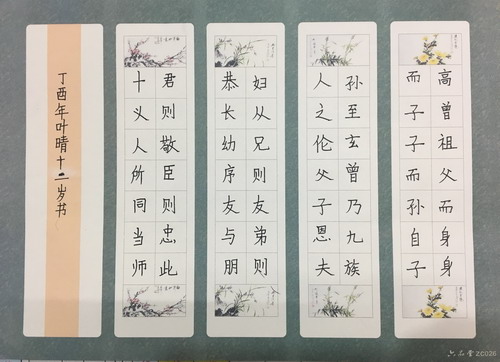 高曾祖父而身身
而子子而孙自子
孙至玄曾乃九族
人之伦父子恩夫
妇从兄则友弟则
恭长幼序友与朋
君则敬臣则忠此
十义人所同当师
丁酉年叶晴十二岁书
六品堂 ZC026